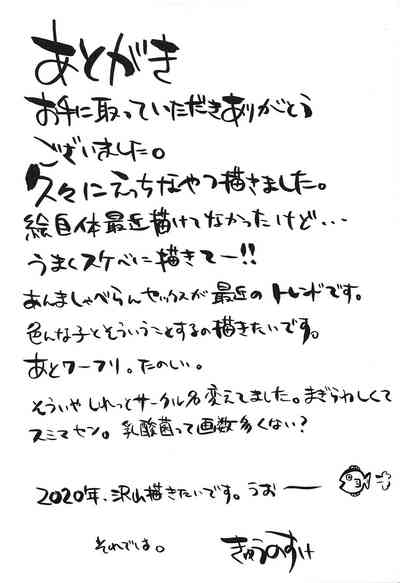 あとがき
お手に取っていただきありがとう
ございました。
久々にえっちなやつ描きました。
絵自体最近描けてなかったけど・・・
うまくスケベに描きてー!!
あんましゃべらんセックスが最近のトレンドです。
色んな子とそういうことするの描きたいです。
あとワーフリ。たのしい。
そういやしれっとサークル名変えてました。まぎらわしくて
スミマセン。乳酸菌って画数多くない?
2020年、沢山描きたいです。うおー
それでは。
きゅうのすけ